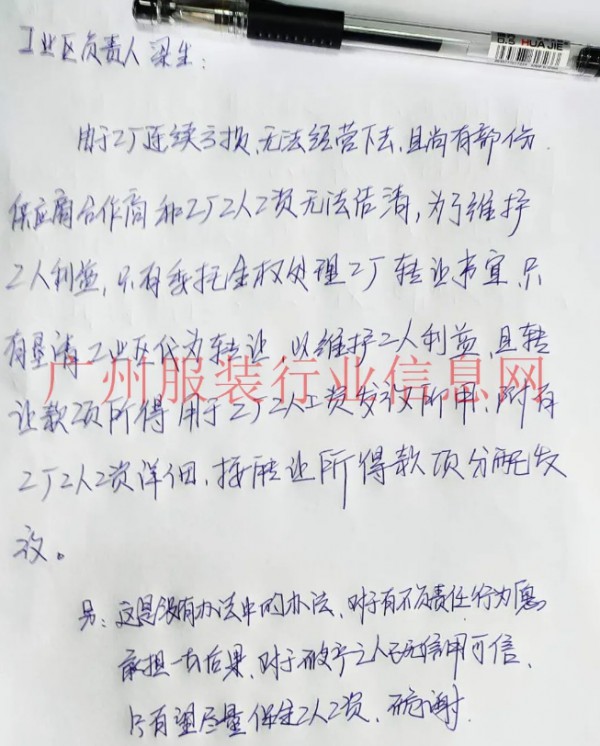 HUAJIE
工业区负责人梁生:
由于工厂连续亏损,无法经营下去,且尚有部份
供应商合作商和工厂工人工资无法结清,为了维护
工人利益,只有委托全权处理工厂转让事宜,只
有恳请工业区代为转让,以维护工人利益,且转
广州服装行业信息网
让款项所得用于工厂工人工资发放所用,附有
工厂工人工资详细,按转让所得款项分配发
放。
另:这是没有办法中的办法,对于有不负责任行为愿
承担一切后果,对于破产之人已无信用可信,
只有望尽量保全工人工资,叩谢